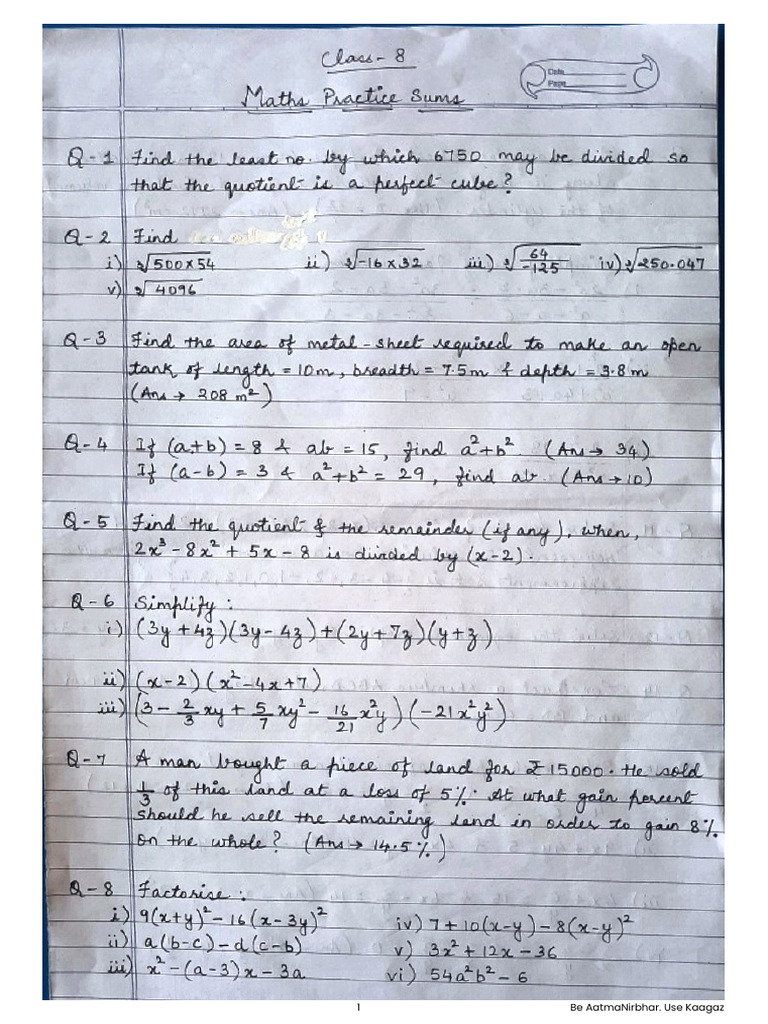 Class - 8
Date
Page
Maths Practice Sums
Q-1 Find the least no. by which 6750 may be divided so
that the quotient is a perfect cube?
Q-2 Find
i) ∛500×54 ii) ∛-16×32 iii) ∛64/-125 iv) ∛250.047
v) ∛4096
Q-3 Find the area of metal-sheet required to make an open
tank of length = 10m, breadth = 7.5m & depth = 3.8m
(Ans → 208 m²)
Q-4 If (a+b) = 8 & ab = 15, find a²+b² (Ans → 34)
If (a-b) = 3 & a²+b² = 29, find ab. (Ans → 10)
Q-5 Find the quotient & the remainder (if any), when,
2x³ - 8x² + 5x - 8 is divided by (x-2).
Q-6 Simplify:
i) (3y+4z)(3y-4z)+(2y+7z)(y+z)
ii) (x-2)(x²-4x+7)
iii) (3 - 2/3 xy + 5/7 xy² - 16/21 x²y)(-21x²y²)
Q-7 A man bought a piece of land for ₹15000. He sold
1/3 of this land at a loss of 5%. At what gain percent
should he sell the remaining land in order to gain 8%
on the whole? (Ans → 14.5%)
Q-8 Factorise:
i) 9(x+y)² - 16(x-3y)² iv) 7+10(x-y)-8(x-y)²
ii) a(b-c)-d(c-b) v) 3x²+12x-36
iii) x²-(a-3)x-3a vi) 54a²b²-6
1 Be AatmaNirbhar. Use Kaagaz